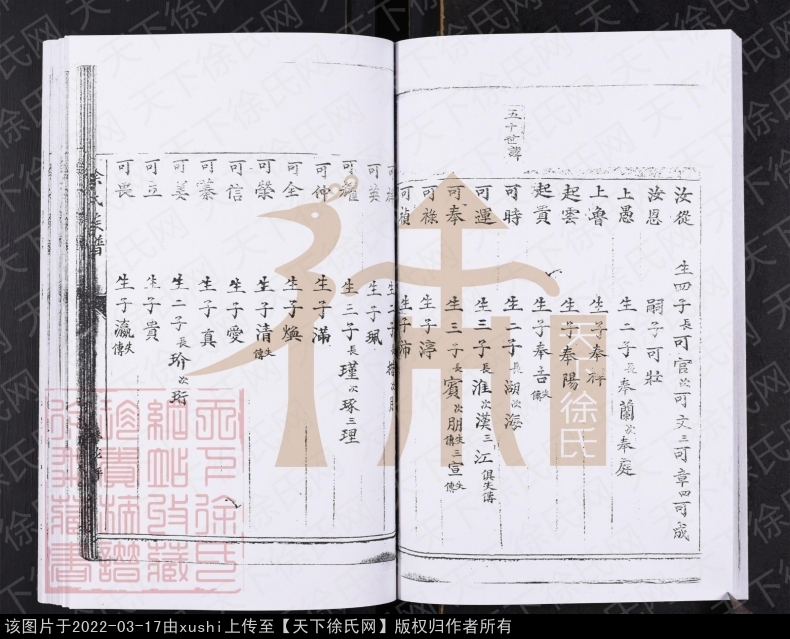 五十世譜
汝從 生四子長可官次可文三可章四可成
汝恩 嗣子可壯
上愚 生二子長奉蘭次奉庭
上魯 生子奉祥
起雲 生子奉陽
起貴 生子奉吉失傳
可時 生二子長湖次海
可運 生三子長淮次漢三江俱失傳
可奉 生三子長賓次朋失傳三宣失傳
可祿 生子淳
可禎 生子沛
可 生二子長 次朋
可英 生子珮
可 生三子長瑾次琢三理
可仲 生子滿
可全 生子煥
可榮 生子清失傳
可信 生子愛
可寨 生子真
可姜 生二子長珨次珩
可立 生子貴
可畏 生子瀛失傳
徐氏族譜
天下徐氏
天下徐氏网
该图片于2022-03-17由xushi上传至【天下徐氏网】版权归作者所有